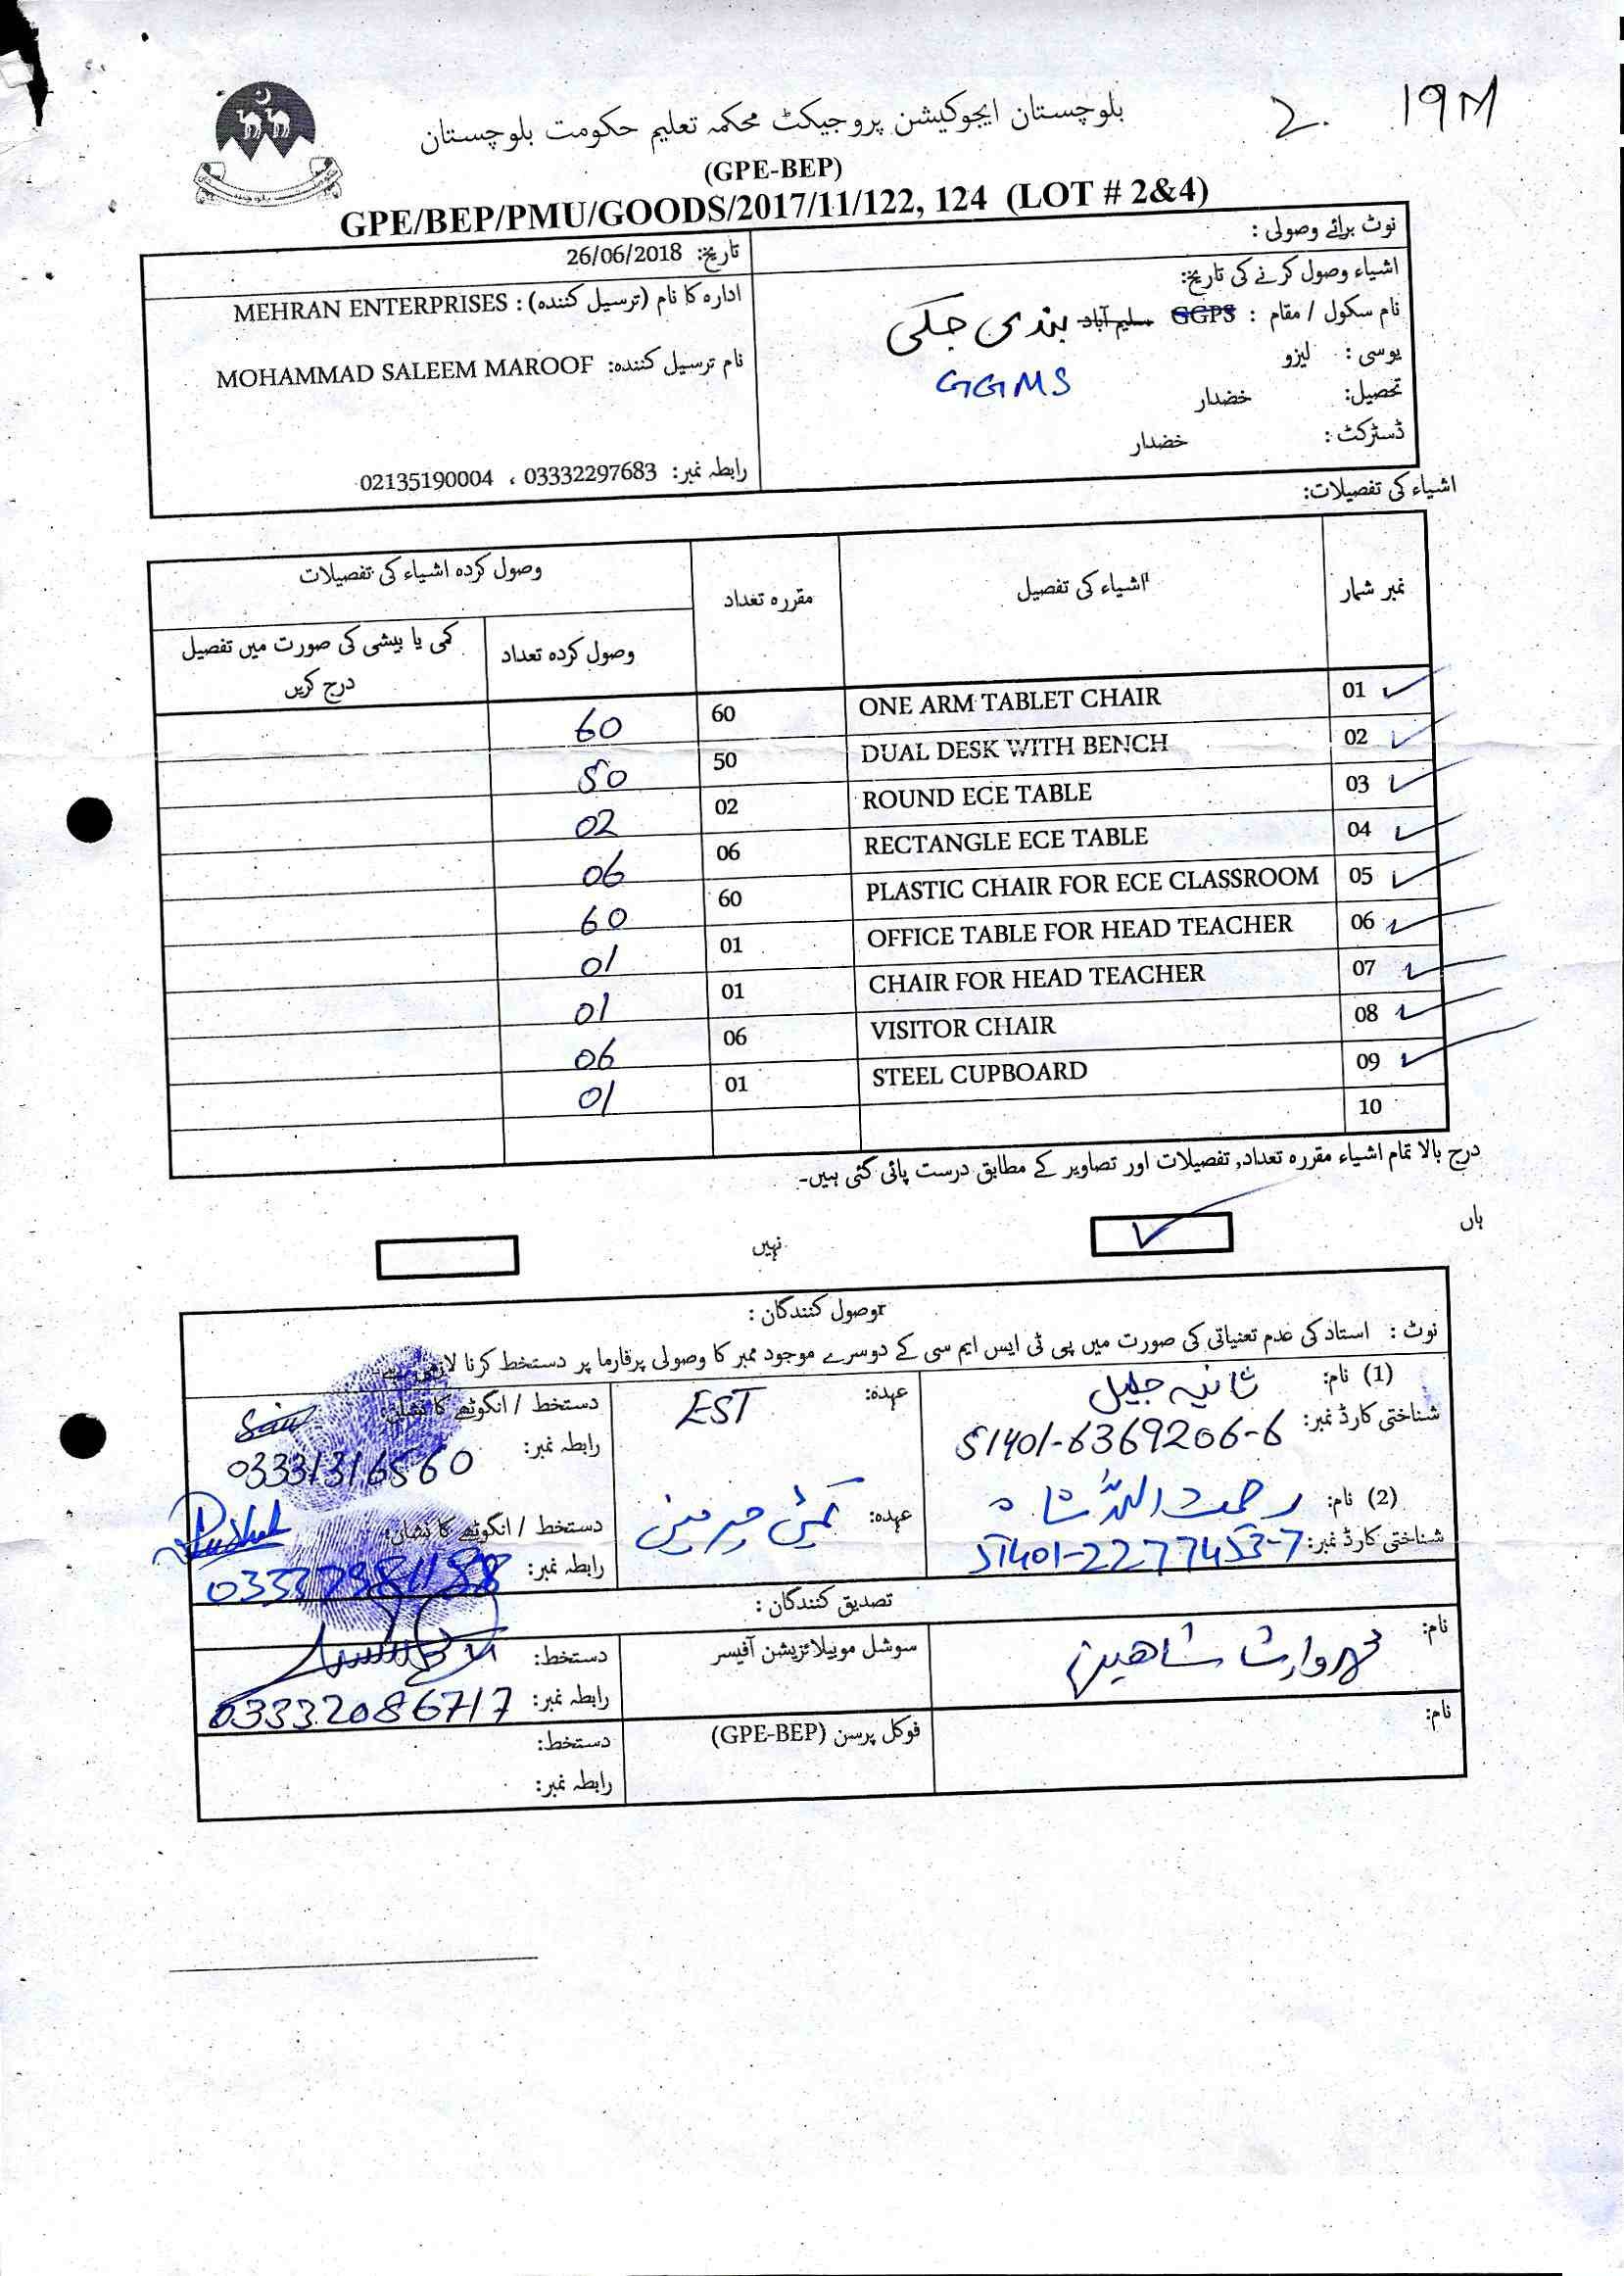 2. 19M
بلوچستان ایجوکیشن پروجیکٹ محکمہ تعلیم حکومت بلوچستان
(GPE-BEP)
GPE/BEP/PMU/GOODS/2017/11/122, 124 (LOT # 2&4)
نوٹ برائے وصولی :
اشیاء وصول کرنے کی تاریخ:
نام سکول / مقام : GGPS سلیم آباد بندی جکی
GGMS
یوسی : لیزو
تحصیل: خضدار
ڈسٹرکٹ : خضدار
تاریخ: 26/06/2018
ادارہ کا نام (ترسیل کنندہ) : MEHRAN ENTERPRISES
نام ترسیل کنندہ: MOHAMMAD SALEEM MAROOF
رابطہ نمبر: 03332297683 ، 02135190004
اشیاء کی تفصیلات:
نمبر شمار اشیاء کی تفصیل مقررہ تعداد وصول کردہ اشیاء کی تفصیلات
وصول کردہ تعداد کمی یا بیشی کی صورت میں تفصیل درج کریں
01 ONE ARM TABLET CHAIR 60 60
02 DUAL DESK WITH BENCH 50 50
03 ROUND ECE TABLE 02 02
04 RECTANGLE ECE TABLE 06 06
05 PLASTIC CHAIR FOR ECE CLASSROOM 60 60
06 OFFICE TABLE FOR HEAD TEACHER 01 01
07 CHAIR FOR HEAD TEACHER 01 01
08 VISITOR CHAIR 06 06
09 STEEL CUPBOARD 01 01
10
درج بالا تمام اشیاء مقررہ تعداد, تفصیلات اور تصاویر کے مطابق درست پائی گئی ہیں۔
ہاں نہیں
وصول کنندگان :
نوٹ : استاد کی عدم تعنیاتی کی صورت میں پی ٹی ایس ایم سی کے دوسرے موجود ممبر کا وصولی پرفارما پر دستخط کرنا لازمی ہے
(1) نام: ثانیہ جلیل عہدہ: EST دستخط / انگوٹھے کا نشان:
شناختی کارڈ نمبر: 51401-6369206-6 رابطہ نمبر: 03331316560
(2) نام: رحمت اللہ شاہ عہدہ: دستخط / انگوٹھے کا نشان:
شناختی کارڈ نمبر: 51401-2277453-7 رابطہ نمبر:
تصدیق کنندگان :
نام: وارث شاھین سوشل موبیلائزیشن آفیسر دستخط:
رابطہ نمبر: 03332086717
نام: فوکل پرسن (GPE-BEP) دستخط:
رابطہ نمبر: